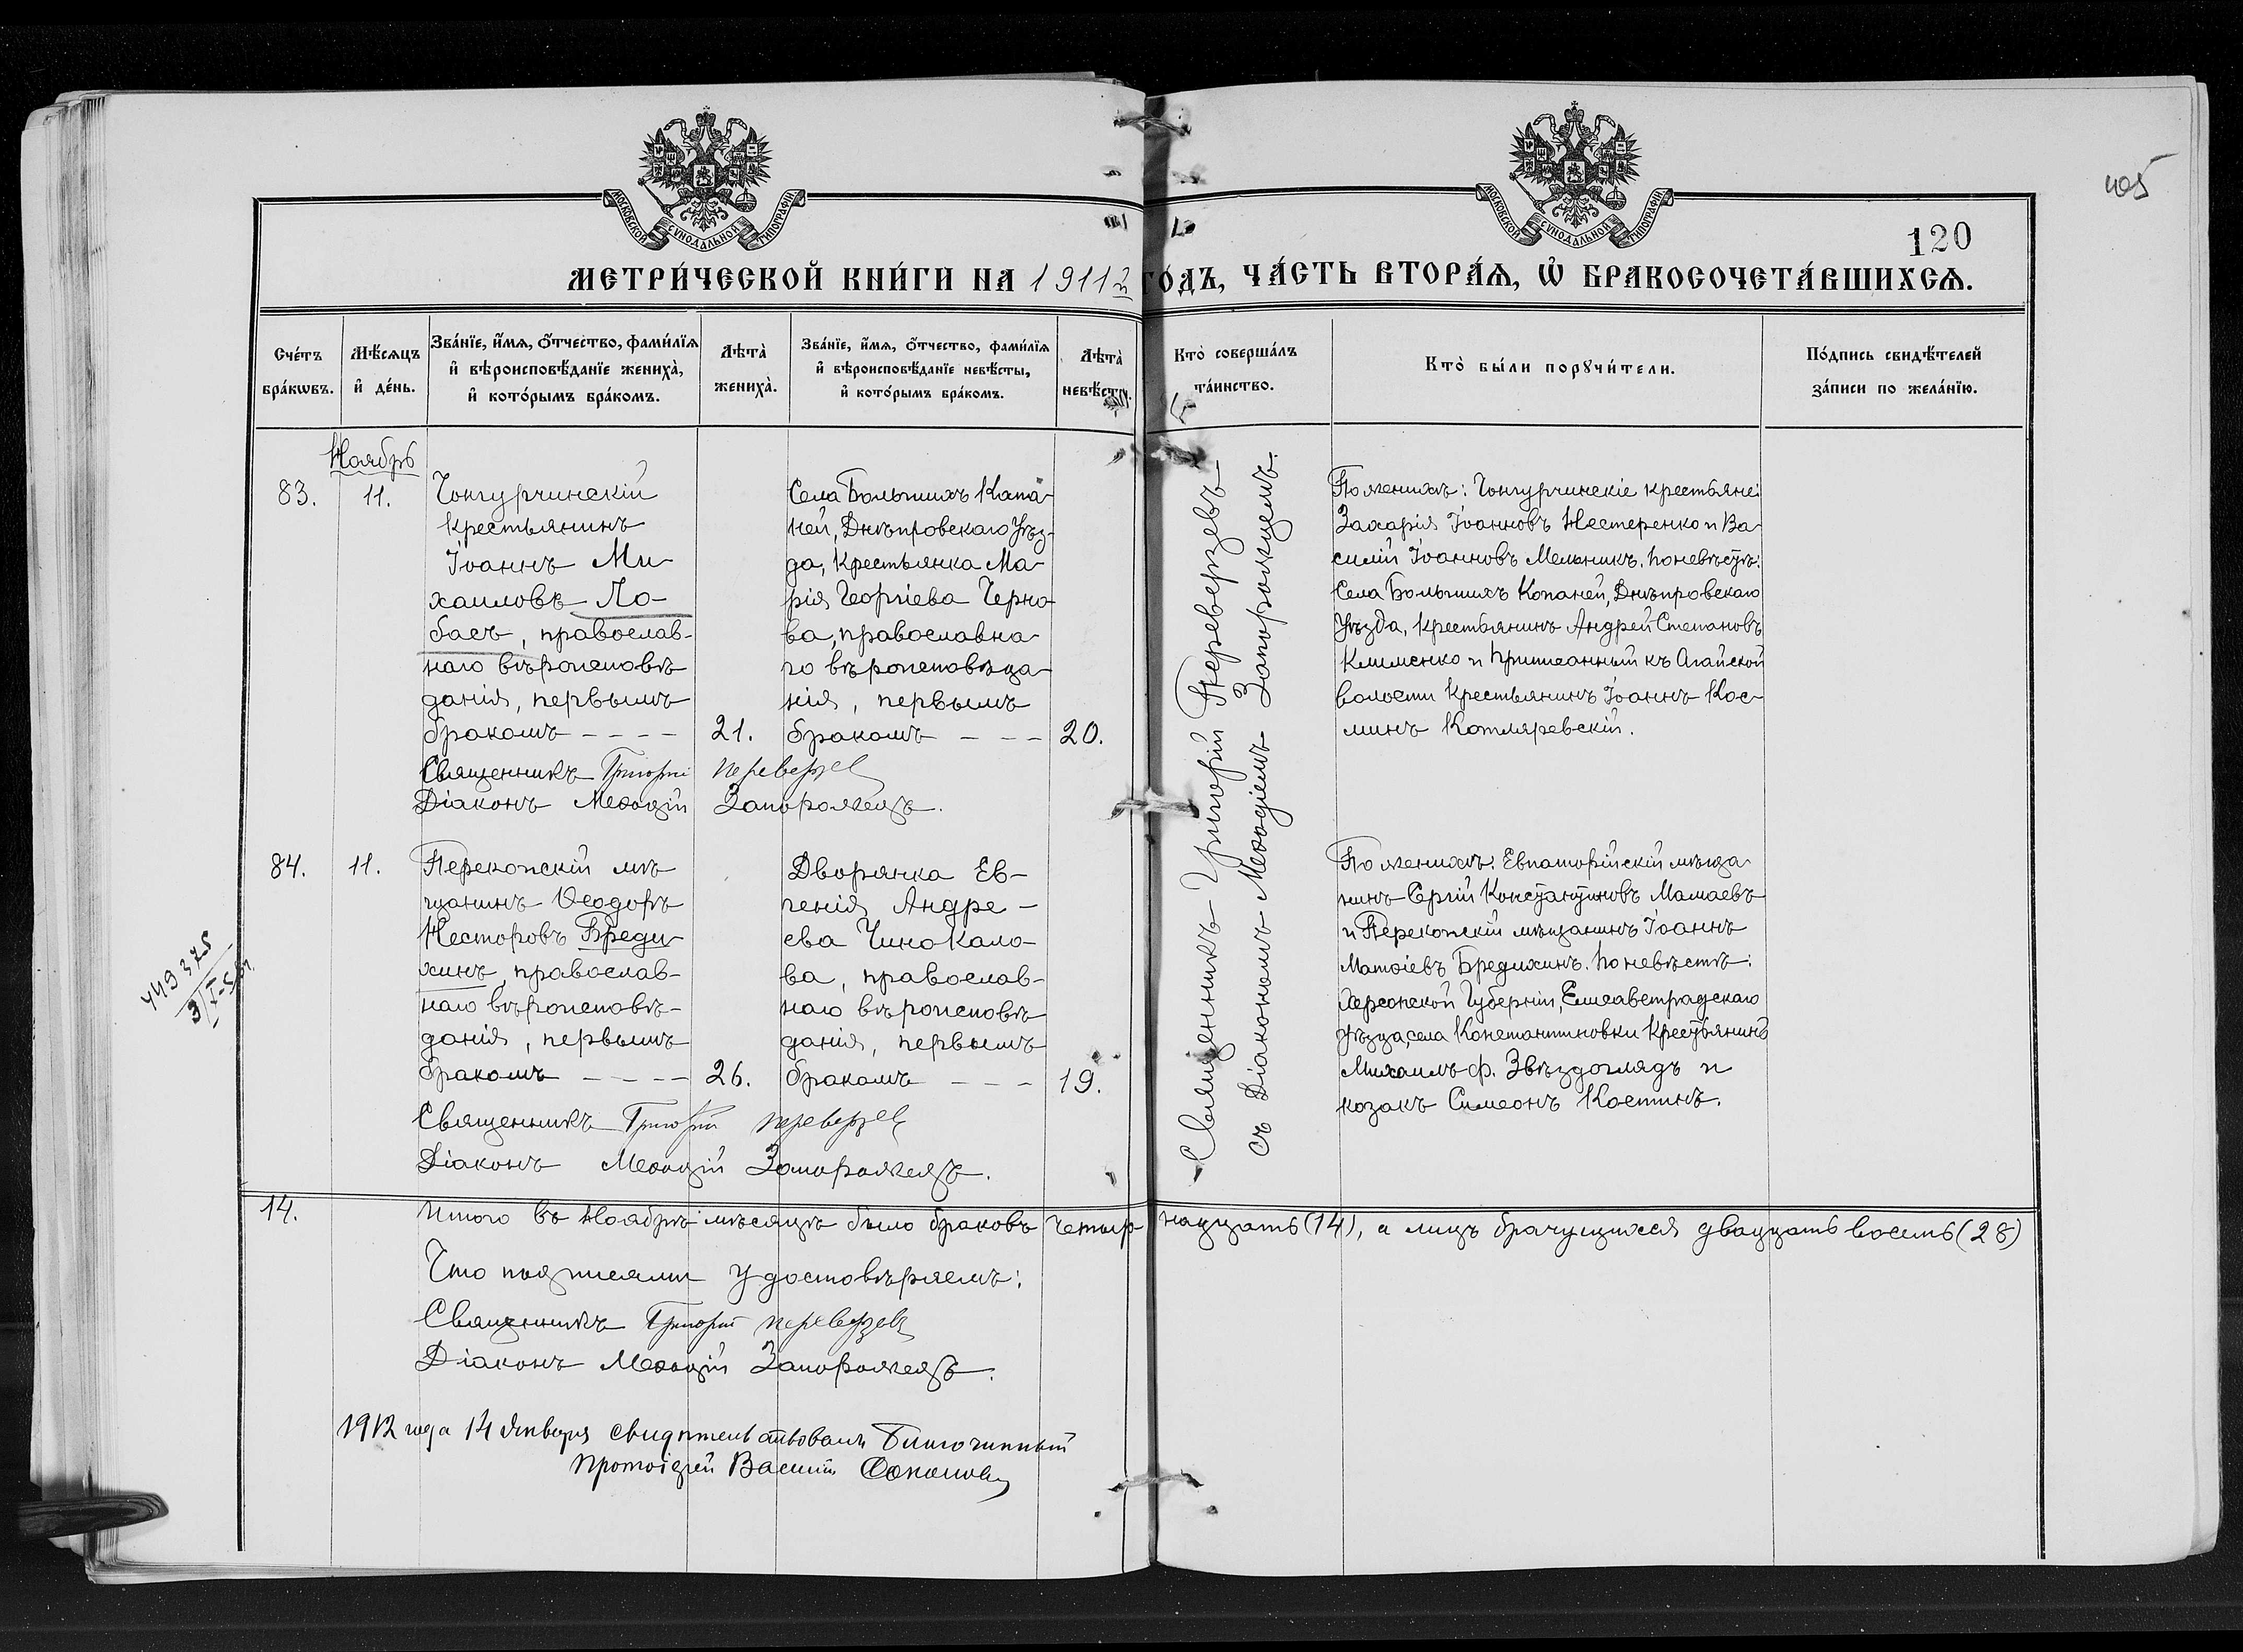 МОСКОВСКОЙ СѴНОДАЛЬНОЙ ТИПОГРАФІИ
МОСКОВСКОЙ СѴНОДАЛЬНОЙ ТИПОГРАФІИ
405
120
МЕТРИ́ЧЕСКОЙ КНИ́ГИ НА 1911 г. ГО́ДЪ, ЧА́СТЬ ВТОРА́Ѧ, Ѽ БРАКОСОЧЕТА́ВШИХСѦ.
Сче́тъ бра́кѡвъ.
Мѣ́сѧцъ и҆ де́нь.
Зва́нїе, и҆́мѧ, ѻ҆́тчество, фами́лїѧ и҆ вѣроисповѣ́данїе жениха̀, и҆ кото́рымъ бра́комъ.
Лѣта̀ жениха̀.
Зва́нїе, и҆́мѧ, ѻ҆́тчество, фами́лїѧ и҆ вѣроисповѣ́данїе невѣ́сты, и҆ кото́рымъ бра́комъ.
Лѣта̀ невѣ́сты.
Кто̀ соверша́лъ та́инство.
Кто̀ бы́ли порꙋчи́тели.
По́дпись свидѣ́телей за́писи по жела́нїю.
Ноябрь
83.
11.
Чонгурчинскій
крестьянинъ
Іоаннъ Ми-
хаиловъ Ло-
басъ, православ-
наго вѣроисповѣ
данія, первымъ
бракомъ - - - -
21.
Села Большихъ Копа-
ней, Днѣпровскаго Уѣз-
да, Крестьянка Ма-
рія Георгіева Черно-
ва, православна-
го вѣроисповѣда-
нія, первымъ
бракомъ - - -
20.
Священникъ Григорій Переверзев
Діаконъ Меѳодій Запорожецъ.
Священникъ Григорій Переверзевъ
съ Діакономъ Меѳодіемъ Запорожцемъ.
По женихѣ: Чонгурчинскіе крестьяне:
Захарія Іоанновъ Нестеренко и Ва-
силій Іоанновъ Мельникъ. По невѣстѣ:
Села Большихъ Копаней, Днѣпровскаго
Уѣзда, Крестьянинъ Андрей Степановъ
Клименко и Приписанный къ Агайской
волости Крестьянинъ Іоаннъ Кос-
минъ Котляревскій.
84.
11.
Перекопскій мѣ
щанинъ Ѳеодоръ
Несторовъ Бреди-
хинъ, православ-
наго вѣроисповѣ-
данія, первымъ
бракомъ - - - -
26.
Дворянка Ев-
генія Андре-
ева Чинокало-
ва, православ-
наго вѣроисповѣ
данія, первымъ
бракомъ - - -
19.
Священникъ Григорій Переверзев
Діаконъ Меѳодій Запорожецъ.
По женихѣ: Евпаторійскій мѣща-
нинъ Сергій Константиновъ Мамаевъ
и Перекопскій мѣщанинъ Іоаннъ
Матѳіевъ Бредихинъ. По невѣстѣ:
Херсонской Губерніи, Елисаветградскаго
Уѣзда, села Константиновки Крестьянинъ
Михаилъ ф. Звѣздоглядъ и
козакъ Симеонъ Костинъ.
449375
14.
Итого въ Ноябрѣ мѣсяцѣ было браковъ четыр-надцать (14), а лицъ брачущихся двадцать восемь (28)
Что подписями удостовѣряемъ:
Священникъ Григорій Переверзевъ
Діаконъ Меѳодій Запорожецъ.
1912 года 14 Января свидѣтельствовалъ Благочинный
Протоіерей Василій